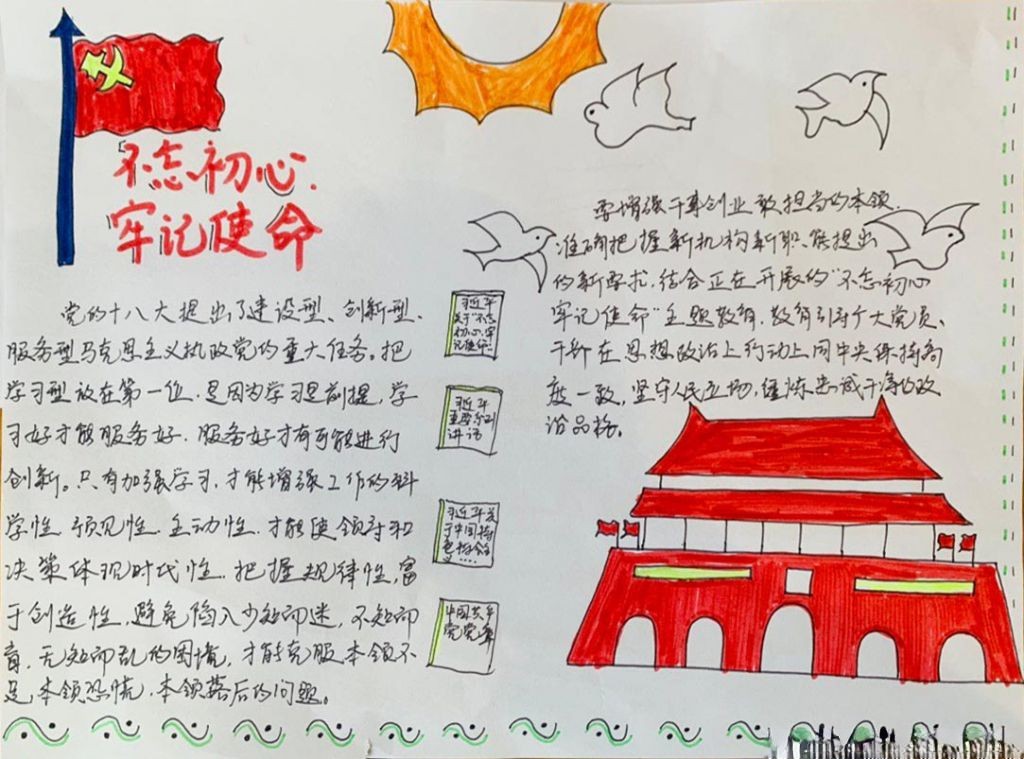 不忘初心.
牢记使命
党的十八大提出了建设型、创新型、
服务型马克思主义执政党的重大任务。把
学习型放在第一位.是因为学习是前提,学
习好才能服务好.服务好才有可能进行
创新。只有加强学习,才能增强工作的科
学性.预见性.主动性.才能使领导和
决策体现时代性.把握规律性,富
于创造性,避免陷入少知而迷,不知而
盲,无知而乱的困境,才能克服本领不
足,本领恐慌,本领落后的问题。
习近平
关于“不忘
初心、牢
记使命”
习近平
重要系列
讲话
习近平关
于中国特
色社会
中国共产
党党章
要增强干事创业敢担当的本领.
准确把握新机构新职能提出
的新要求,结合正在开展的“不忘初心
牢记使命”主题教育,教育引导广大党员、
干部在思想政治上行动上同中央保持高
度一致,坚守人民立场,锤炼忠诚干净的政
治品格。